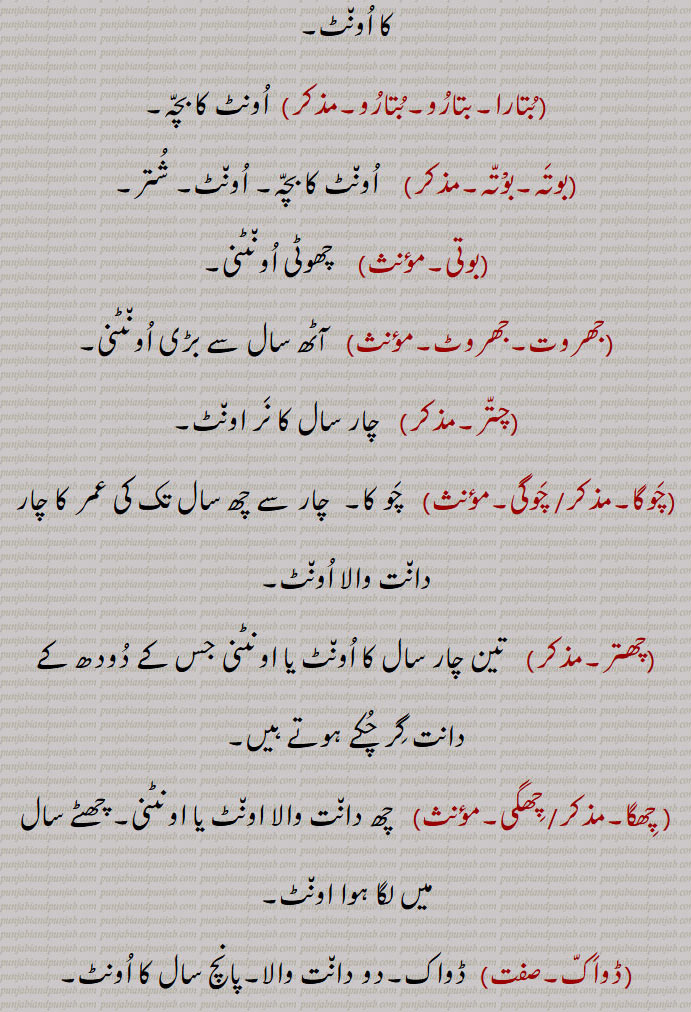 کا اُونٚٹ۔
(بُتارا۔ بتارُو۔بُتارُو۔مذکر) اُونٹ کا بچّہ۔
(بوتَہ۔بوْتّہ۔مذکر) اُونٚٹ کا بچّہ۔ اُونٚٹ۔ شُتر۔
(بوتی۔مؤنث) چھوٹی اُونٚٹنی۔
(جھروت۔جھروٹ۔مؤنث) آٹھ سال سے بڑی اُونٚٹنی۔
(چتّر۔مذکر) چار سال کا نَر اونٚٹ۔
(چَوگا۔مذکر/ چَوگی۔مؤنث) چَو کا۔ چار سے چھ سال تک کی عمر کا چار
دانٚت والا اُونٚٹ۔
(چھتر۔مذکر) تین چار سال کا اُونٚٹ یا اونٹنی جس کے دُودھ کے
دانت گِر چُکے ہوتے ہیں۔
( چِھگا۔مذکر/ چِھگی۔مؤنث) چھ دانٚت والا اونٚٹ یا اونٹنی۔ چھٹے سال
میں لگا ہوا اونٚٹ۔
(ڈواکّ۔صفت) ڈواک۔دو دانٚت والا۔پانچ سال کا اُونٹ۔